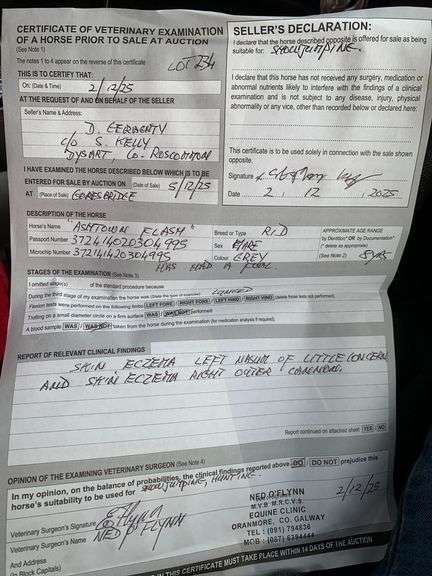 CERTIFICATE OF VETERINARY EXAMINATION
OF A HORSE PRIOR TO SALE AT AUCTION
(See Note 1)
The notes 1 to 4 appear on the reverse of this certificate
LOT 234
THIS IS TO CERTIFY THAT:
On: (Date & Time) 2/12/25
AT THE REQUEST OF AND ON BEHALF OF THE SELLER
Seller's Name & Address:
D. GERAGHTY
C/O S. KELLY
DYSART, CO. ROSCOMMON
I HAVE EXAMINED THE HORSE DESCRIBED BELOW WHICH IS TO BE
ENTERED FOR SALE BY AUCTION ON (Date of Sale) 5/12/25
AT (Place of Sale) GORESBRIDGE
SELLER'S DECLARATION:
I declare that the horse described opposite is offered for sale as being
suitable for: SHOWJUMPING.
I declare that this horse has not received any surgery, medication or
abnormal nutrients likely to interfere with the findings of a clinical
examination and is not subject to any disease, injury, physical
abnormality or any vice, other than recorded below or declared here:
This certificate is to be used solely in connection with the sale shown
opposite.
Signature
Date 2 . 12 , 2025
DESCRIPTION OF THE HORSE
Horse's Name "ASHTOWN FLASH" Breed or Type R.I.D
Passport Number 372414020304995 Sex MARE
Microchip Number 372141420304995 Colour GREY
HAS HAD A FOAL.
APPROXIMATE AGE RANGE
by Dentition* OR by Documentation*
(* delete as appropriate)
(See Note 2) 8YRS
STAGES OF THE EXAMINATION (See Note 3)
I omitted stage(s) of the standard procedure because
During the third stage of my examination the horse was (State the type of exercise) LUNGED
Flexion tests were performed on the following limbs LEFT FORE / RIGHT FORE / LEFT HIND / RIGHT HIND (delete those limbs not performed).
Trotting on a small diameter circle on a firm surface WAS / WAS NOT performed
A blood sample WAS / WAS NOT taken from the horse during the examination (for medication analysis if required).
REPORT OF RELEVANT CLINICAL FINDINGS
SKIN ECZEMA LEFT NASUM OF LITTLE CONCERN
AND SKIN ECZEMA RIGHT OUTER
Report continued on attached sheet YES / NO
OPINION OF THE EXAMINING VETERINARY SURGEON (See Note 4)
In my opinion, on the balance of probabilities, the clinical findings reported above DO / DO NOT prejudice this
horse's suitability to be used for SHOWJUMPING, HUNTING
Veterinary Surgeon's Signature
Veterinary Surgeon's Name NED O'FLYNN
And Address
(in Block Capitals)
NED O'FLYNN
M.V.B M.R.C.V.S
EQUINE CLINIC
ORANMORE, CO. GALWAY
TEL: (091) 794838
MOB: (087) 6394444
2/12/25
IN THIS CERTIFICATE MUST TAKE PLACE WITHIN 14 DAYS OF THE AUCTION